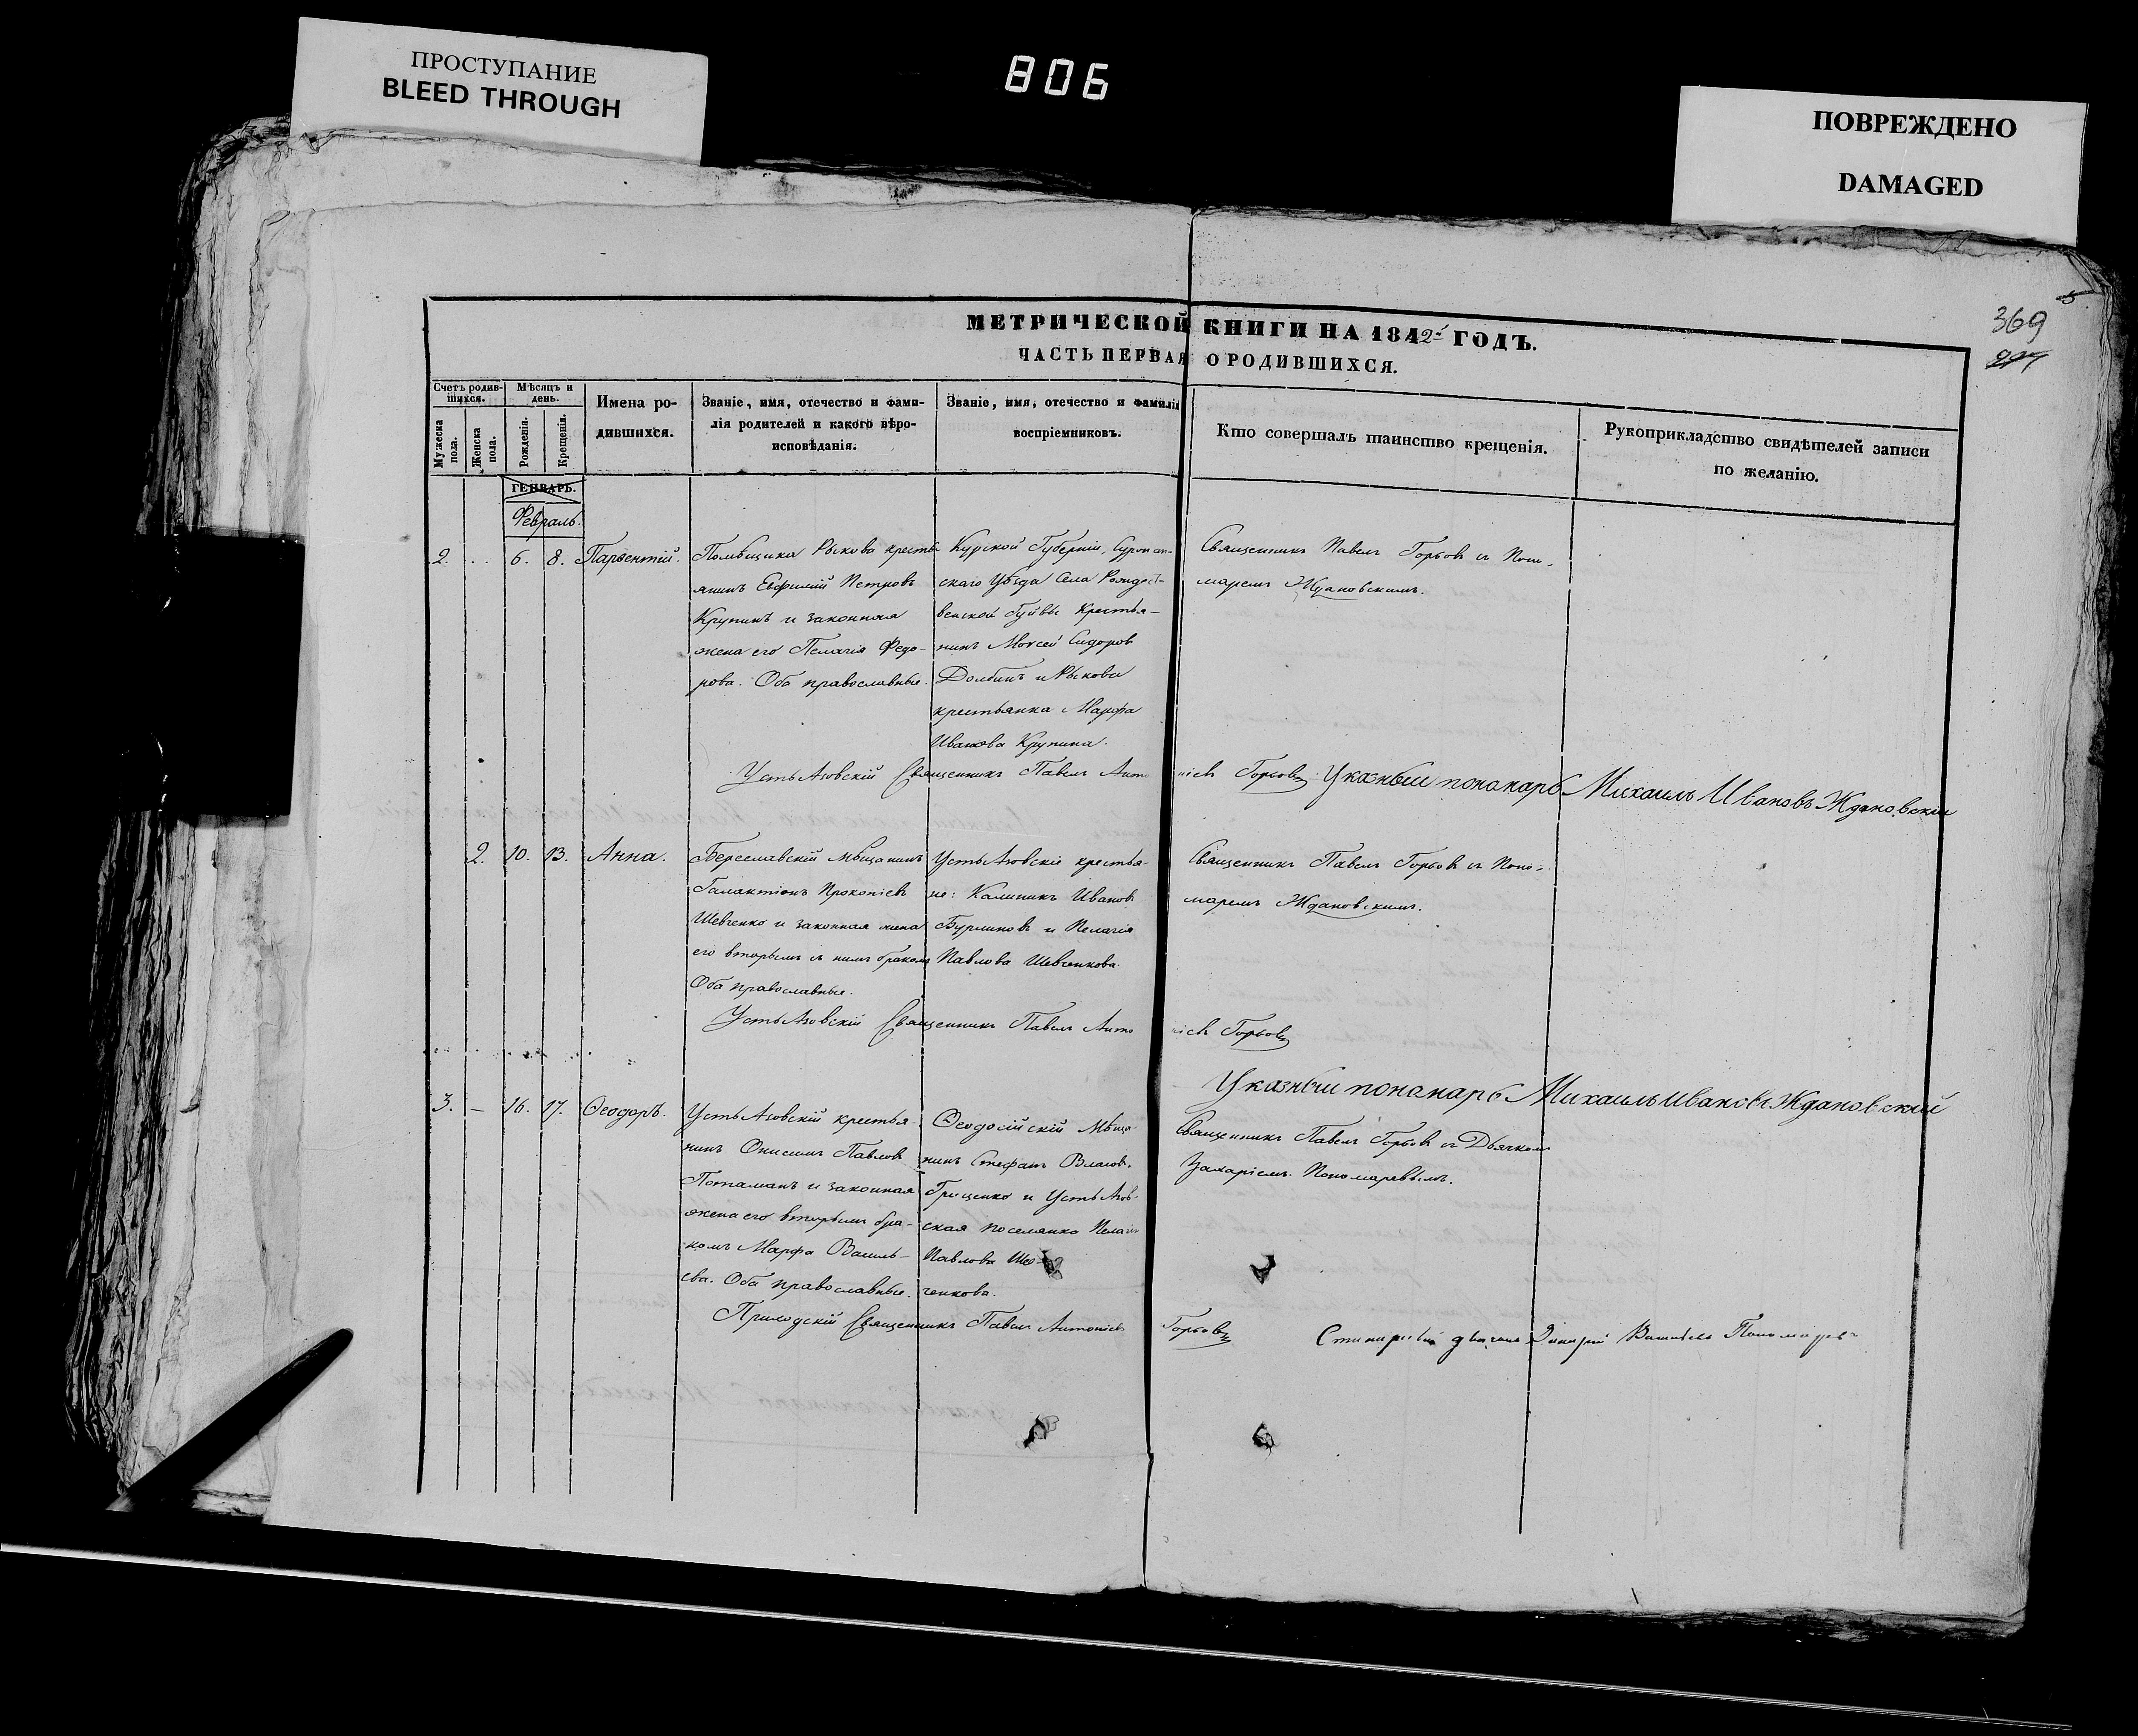 ПРОСТУПАНИЕ
BLEED THROUGH
806
ПОВРЕЖДЕНО
DAMAGED
369
МЕТРИЧЕСКОЙ КНИГИ НА 1842й ГОДЪ.
ЧАСТЬ ПЕРВАЯ О РОДИВШИХСЯ.
Счетъ родив-
шихся.
Мѣсяцъ и
день.
Мужеска
пола.
Женска
пола.
Рожденія.
Крещенія.
Имена ро-
дившихся.
Званіе, имя, отечество и фами-
лія родителей и какого вѣро-
исповѣданія.
Званіе, имя, отечество и фамилія
воспріемниковъ.
Кто совершалъ таинство крещенія.
Рукоприкладство свидѣтелей записи
по желанію.
ГЕНВАРЬ.
Февраль.
2. . . 6. 8. Парѳентій.
Помѣщика Рыкова кресть
янинъ Евфимій Петровъ
Крупинъ и законная
жена его Пелагія Федо-
рова. Оба православные.
Курской Губерніи,
скаго Уѣзда Села Рождест-
венской Крестья-
нинъ Моѵсей Сидоровъ
Долбинъ и Рыкова
крестьянка Марфа
Иванова Крупина.
Священникъ Павелъ Горьовъ съ Поно-
маремъ Ждановскимъ.
УстьАзовскій Священникъ Павелъ Антоніевъ Горьовъ Указный понамарь Михаилъ Ивановъ Ждановскій
2. 10. 13. Анна.
Береславскій мѣщанинъ
Галактіонъ Прокопіевъ
Шевченко и законная жена
его вторымъ съ нимъ бракомъ
Оба православные.
УстьАзовскіе крестья-
не: Калиникъ Ивановъ
Бурлиновъ и Пелагія
Павлова Шевченкова.
Священникъ Павелъ Горьовъ съ Поно-
маремъ Ждановскимъ.
УстьАзовскій Священникъ Павелъ Антоніевъ Горьовъ
Указный понамарь Михаилъ Ивановъ Ждановскій
3. — 16. 17. Ѳеодоръ.
УстьАзовскій крестья-
нинъ Онисимъ Павловъ
Потаманъ и законная
жена его вторымъ бра-
комъ Марфа Василь-
ева. Оба православные.
Ѳеодосійскій Мѣща-
нинъ Стефанъ Власовъ
Гриценко и УстьАзов-
ская поселянка Пелагія
Павлова Шев-
ченкова.
Священникъ Павелъ Горьовъ съ Дьячкомъ
Захаріемъ Пономаревымъ.
Приходскій Священникъ Павелъ Антоніевъ Горьовъ
Захарій Васильевъ Пономаревъ